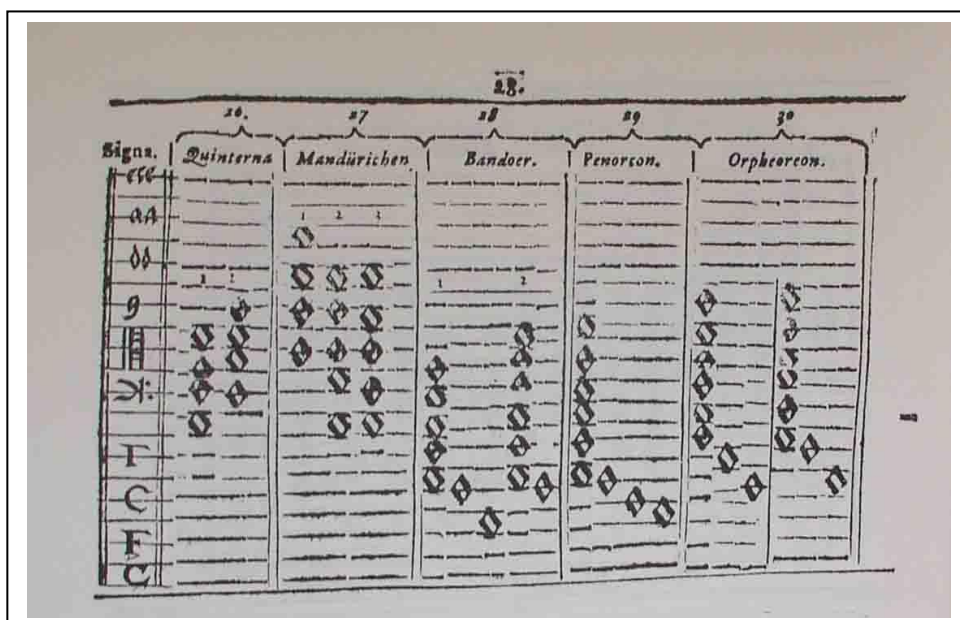 28.
26. 27 28 29 30
Signa. Quinterna Mandürichen Bandoer. Penorcon. Orpheoreon.
aa 1 2 3
dd
1 2 1 2
g
Γ
C
F
C